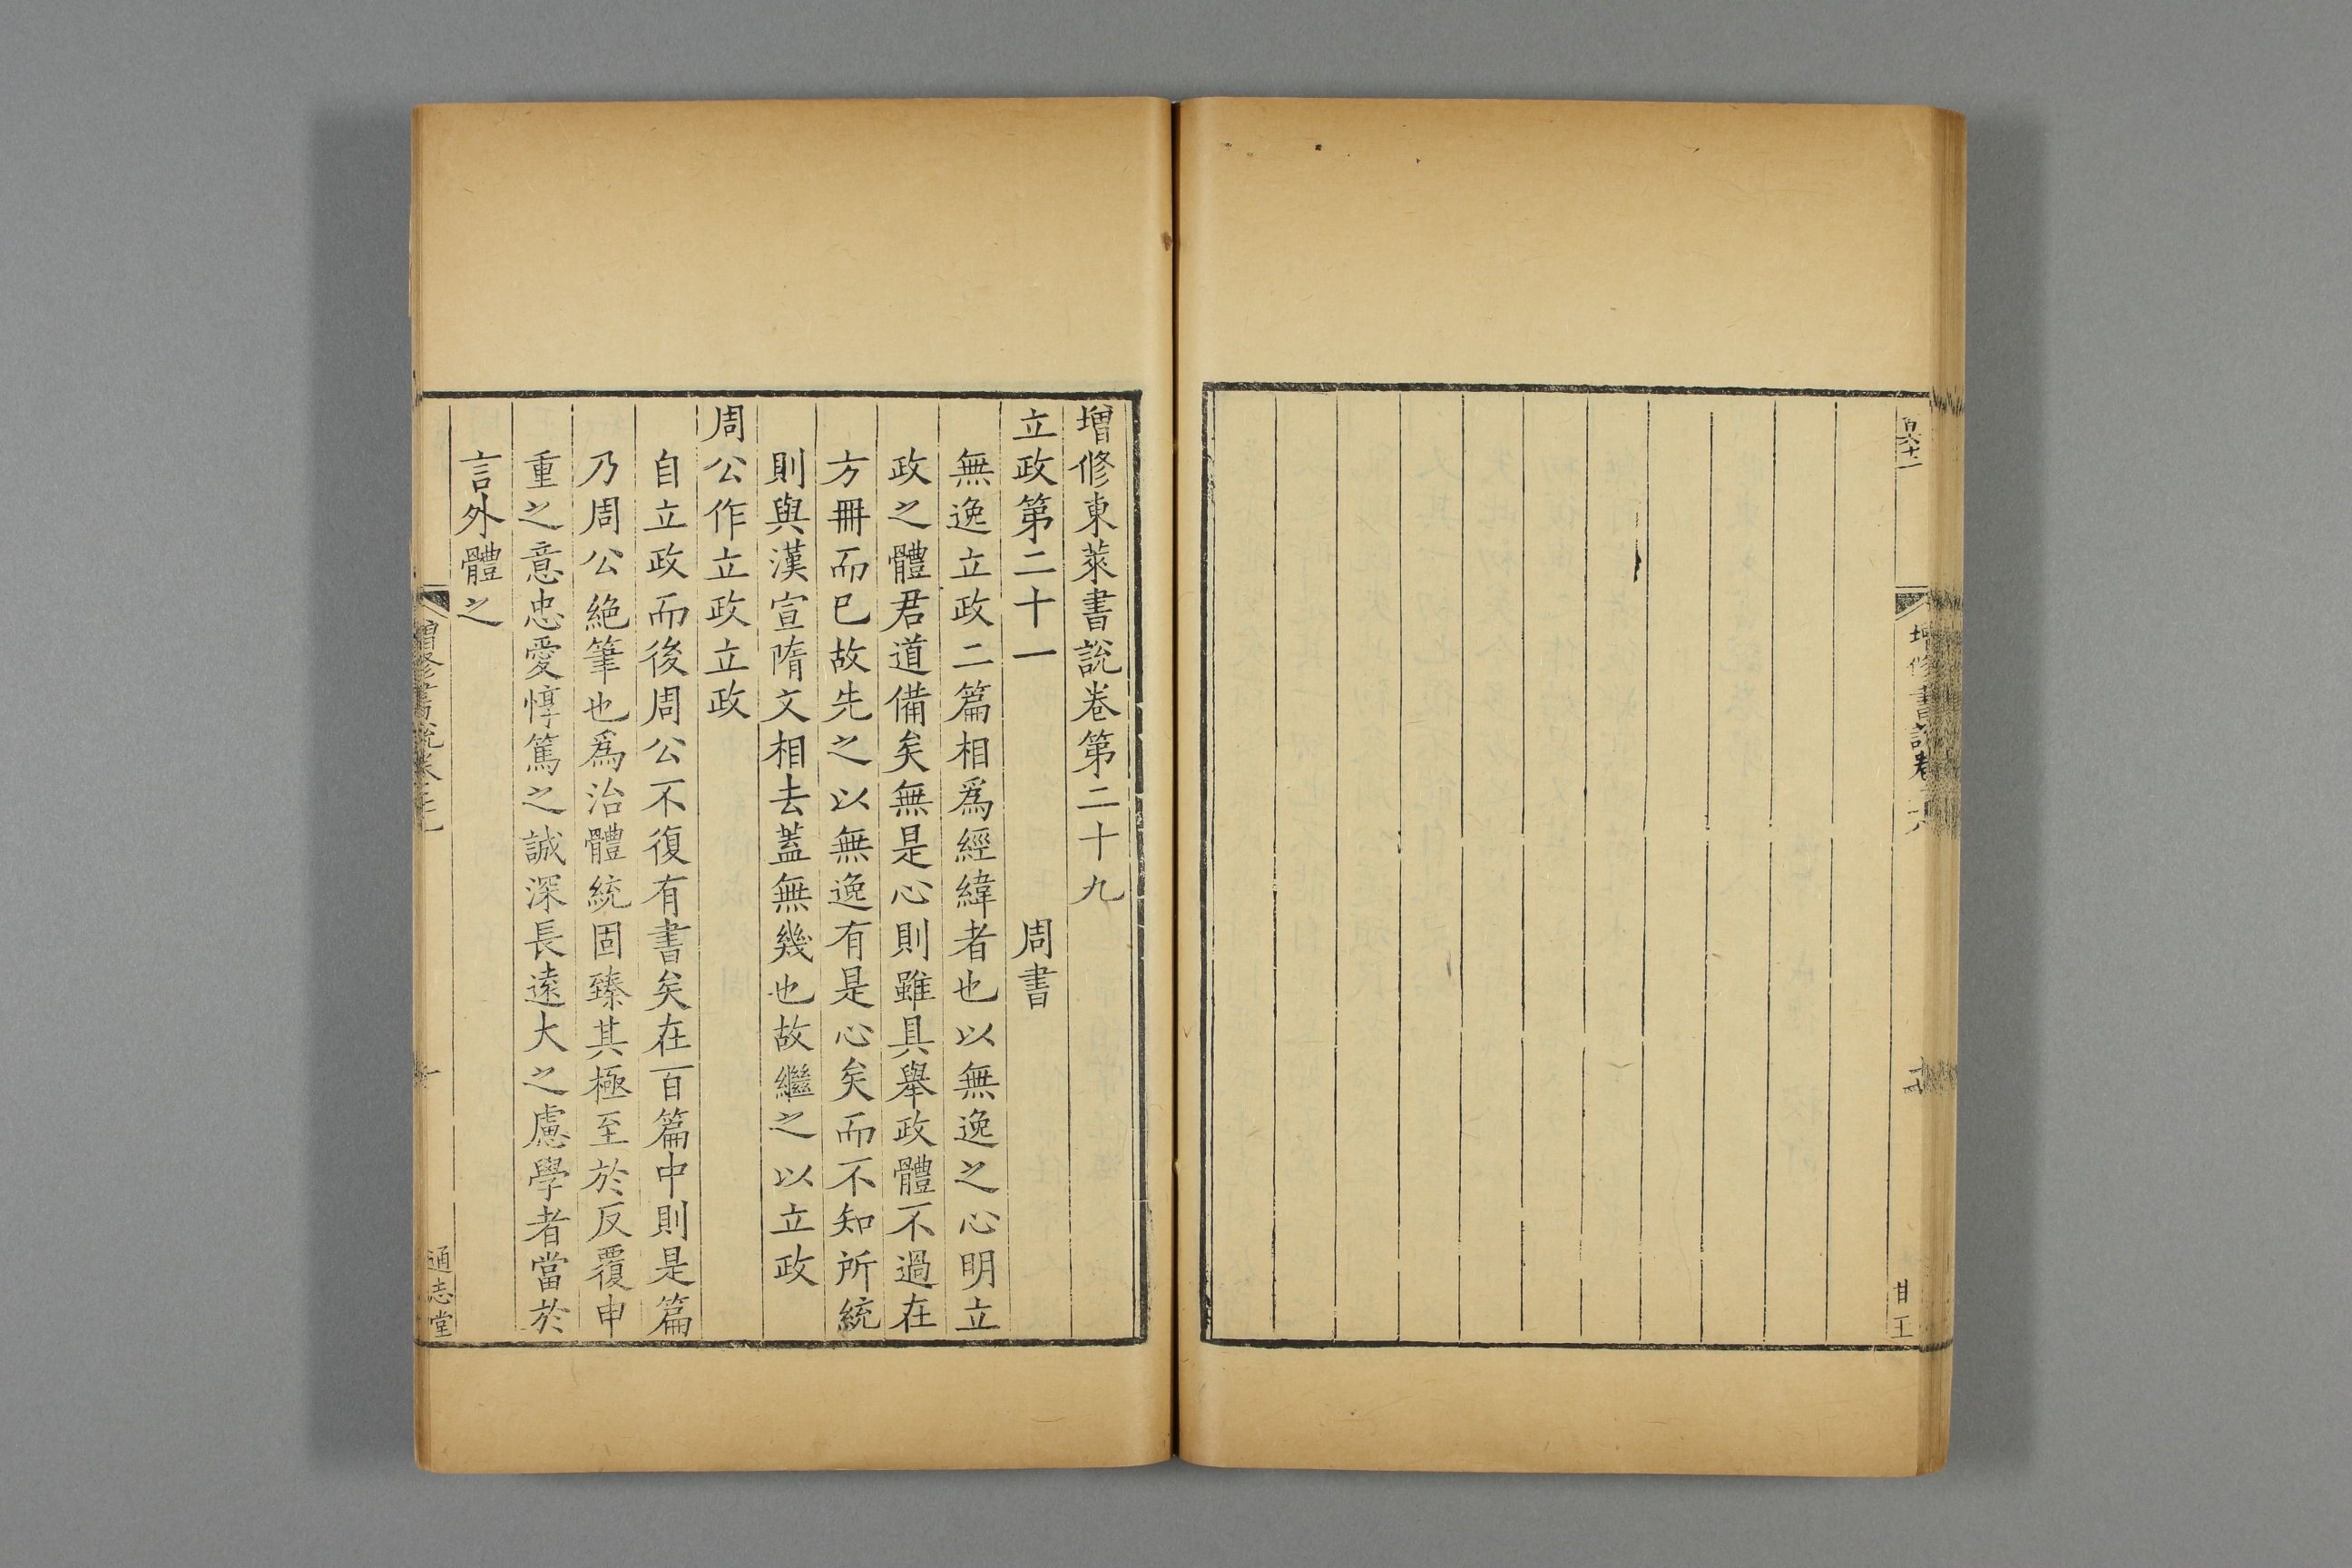 百六十一
增修書說卷二十八
甘王
增修東萊書說卷第二十九
立政第二十一 周書
無逸立政二篇相爲經緯者也以無逸之心明立
政之體君道備矣無是心則雖具舉政體不過在
方冊而已故先之以無逸有是心矣而不知所統
則與漢宣隋文相去蓋無幾也故繼之以立政
周公作立政立政
自立政而後周公不復有書矣在百篇中則是篇
乃周公絶筆也爲治體統固臻其極至於反覆申
重之意忠愛惇篤之誠深長遠大之慮學者當於
言外體之
增修書說卷二十九
一
通志堂